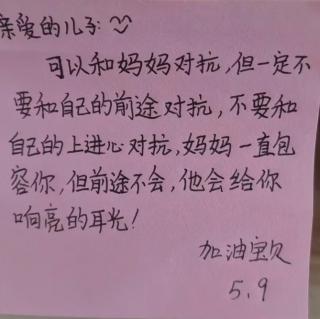 亲爱的儿子:
可以和妈妈对抗,但一定不
要和自己的前途对抗,不要和
自己的上进心对抗,妈妈一直包
容你,但前途不会,他会给你
响亮的耳光!
加油宝贝
5.9